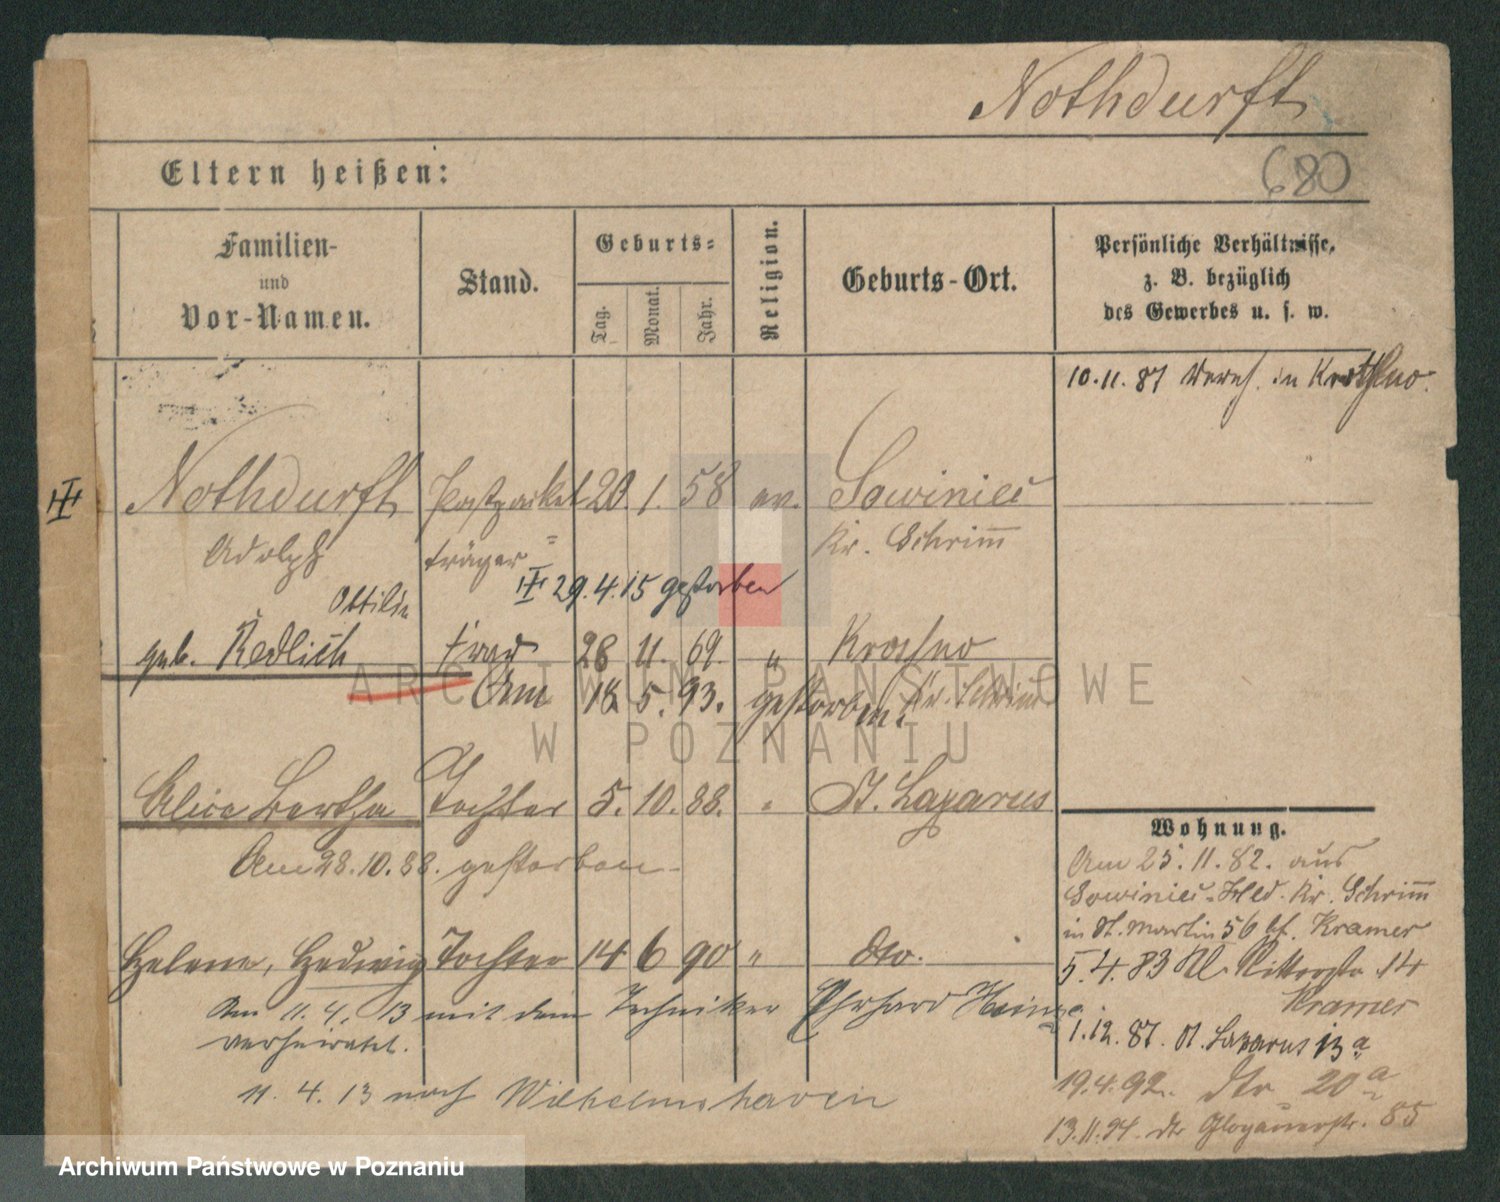 Nothdurft
680
Eltern heißen:
Familien-
und
Vor-Namen.
Stand.
Geburts-
Tag.
Monat.
Jahr.
Religion.
Geburts-Ort.
Persönliche Verhältnisse,
z. B. bezüglich
des Gewerbes u. s. w.
10.11.87 in
Nothdurft Postpacket 20. 1. 58 ev. Sowiniec
Adolph träger Kr. Schrimm
29.4.15 gestorben
Ottilie
geb. Redlich Frau 28 11. 69. " Krosno
Am 18. 5. 93. gestorben. Kr. Schrimm
Alice Bertha Tochter 5. 10. 88. " St. Lazarus
Am 28.10.88. gestorben
Helene, Hedwig Tochter 14 6 90 " dto.
Am 11. 4. 13 mit dem Techniker Ehrhard Heinze
verheiratet.
11. 4. 13 nach Wilhelmshaven
Wohnung.
Am 25.11.82. aus
Sowiniec-Hld. Kr. Schrimm
in St. Martin 56 bf. Kramer
5.4.83 Kl. Ritterstr. 14
Kramer
1.12.87. St. Lazarus 13a
19.4.92. dto 20a
13.11.94. dto Glogauerstr. 85
ARCHIWUM PAŃSTWOWE
W POZNANIU
Archiwum Państwowe w Poznaniu